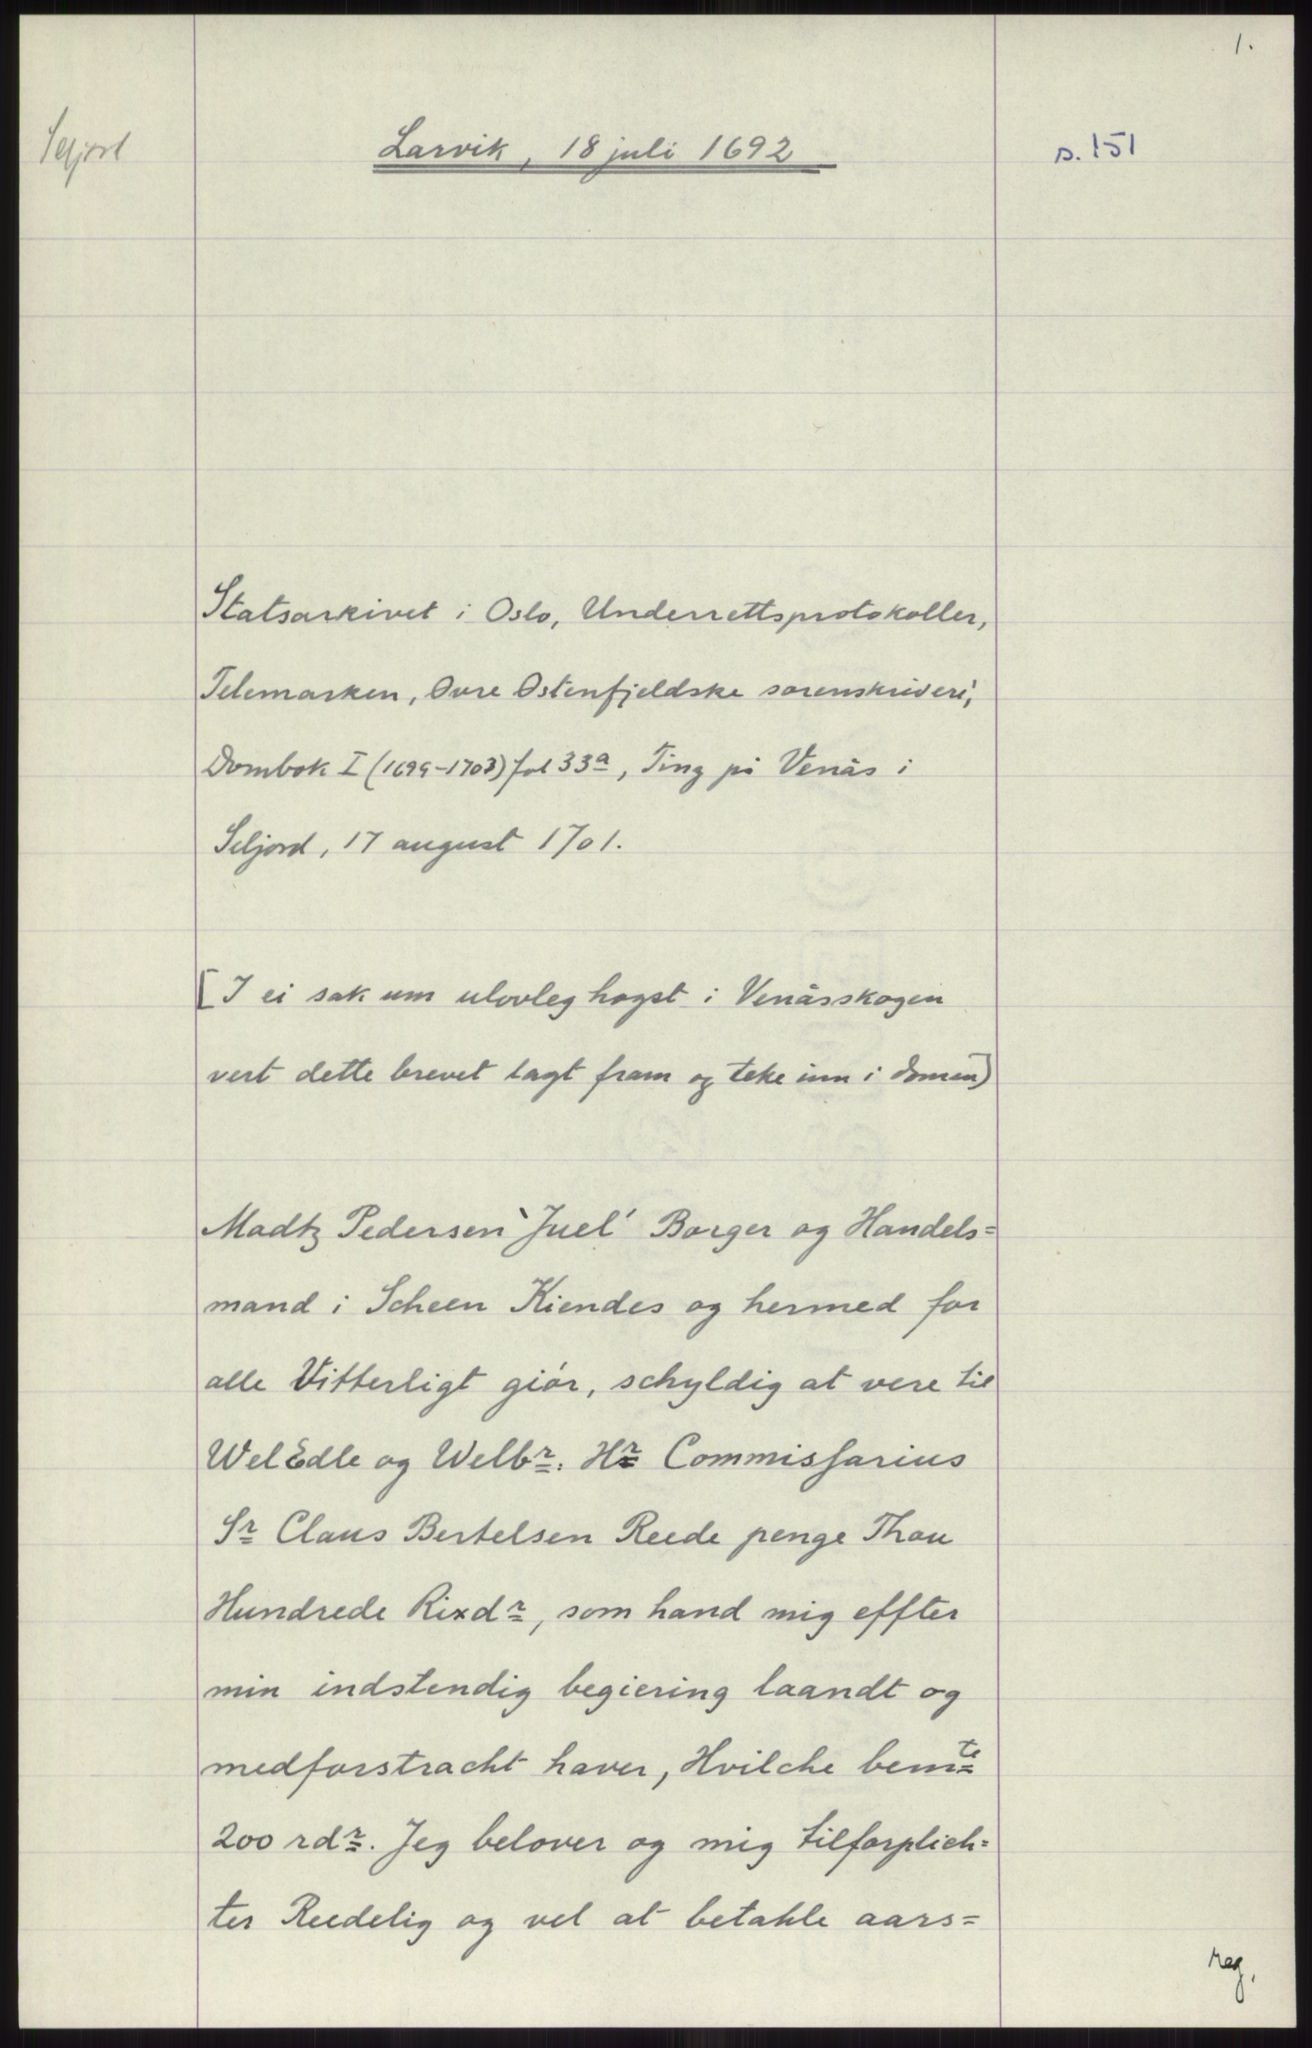 1.
Seljord
Larvik, 18 juli 1692
s. 151
Statsarkivet i Oslo, Underrettsprotokoller,
Telemarken, Øvre Østenfjeldske sorenskriveri,
Dombok I (1699-1703) fol 33a, Ting på Venås i
Seljord, 17 august 1701.
[I ei sak um ulovleg hogst i Venåsskogen
vert dette brevet lagt fram og teke inn i domen]
Madtz Pedersen 'Juel' Borger og Handels=
mand i Scheen Kiendes og hermed for
alle Vitterligt giór, schyldig at vere til
WelEdle og Welbr: Hr Commissarius
Sr Claus Bertelsen Reede penge Thou
Hundrede Rixdr, som hand mig effter
min indstendig begiering laandt og
medforstracht haver, Hvilche bemte
200 rdr. Jeg belover og mig tilforplich=
ter Reedelig og vel at betahle aars=
reg.